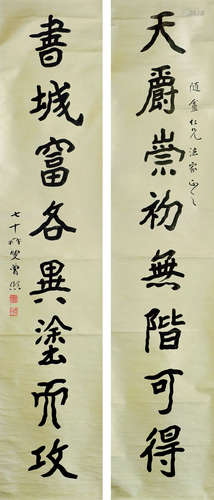 天爵崇初無階可得
仁兄法家正之
書城富各異塗而攻
七十叟曾熙